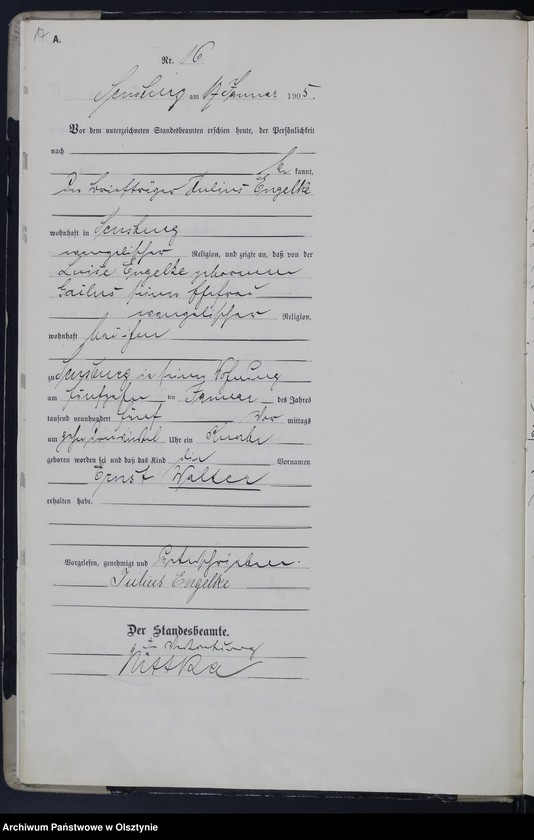 17
A.
Nr. 16
Sensburg am 17 Januar 1905.
Vor dem unterzeichneten Standesbeamten erschien heute, der Persönlichkeit
nach
be kannt,
der Briefträger Julius Engelke
wohnhaft in Sensburg
evangelischer Religion, und zeigte an, daß von der
Luise Engelke geborenen
Gailus seiner Ehefrau
evangelischer Religion,
wohnhaft bei ihm
zu Sensburg in seiner Wohnung
am fünfzehnten Januar des Jahres
tausend neunhundert fünf Vor mittags
um Uhr ein Knabe
geboren worden sei und daß das Kind die Vornamen
Ernst Walter
erhalten habe.
Vorgelesen, genehmigt und unterschrieben.
Julius Engelke
Der Standesbeamte.
in Vertretung
Nittka
Archiwum Państwowe w Olsztynie